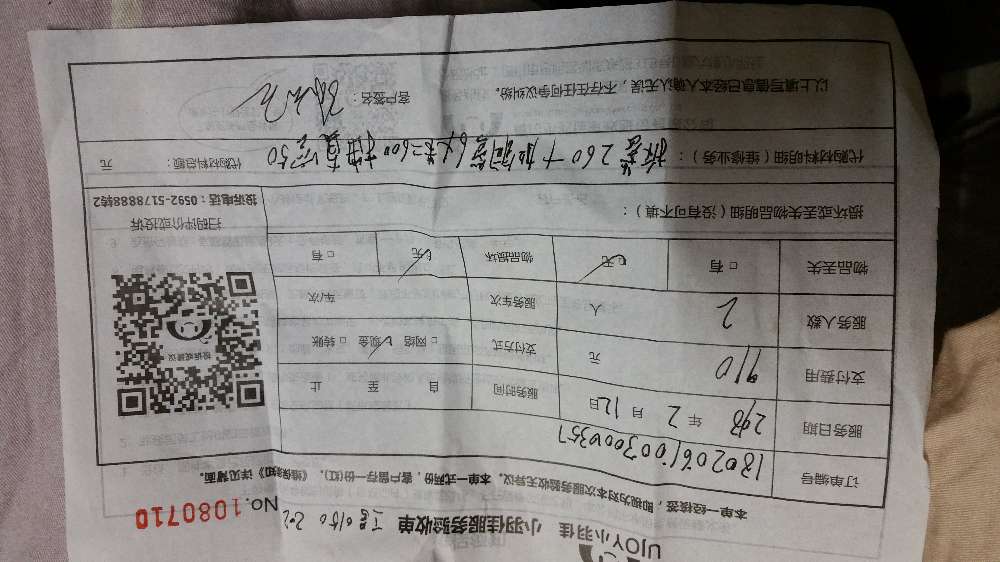 UJOY小羽佳 小羽佳服务验收单 工号0150 202
NO.1080710
本单一经核签，即视为对本次服务验收无异议。本单一式两份，客户留存一份(红)，《维保须知》详见背面。
订单编号 180206100300000357
服务日期 2018年2月12日 服务时间 自 至 止
支付费用 910 元 支付方式 □网络 ☑现金 □转账
服务人数 2 人 服务车次 车/次
物品丢失 □有 ☑无 物品损坏 ☑无 □有
投诉或建议
扫码评价或投诉
投诉电话：0592-5178888转2
损坏或丢失物品明细（没有可不填）：
代购材料明细（维修业务）：拆装260+加铜管6米=600 插直管50 代购材料总额： 元
以上填写信息已经本人确认无误，不存在任何争议纠纷。 客户签名：